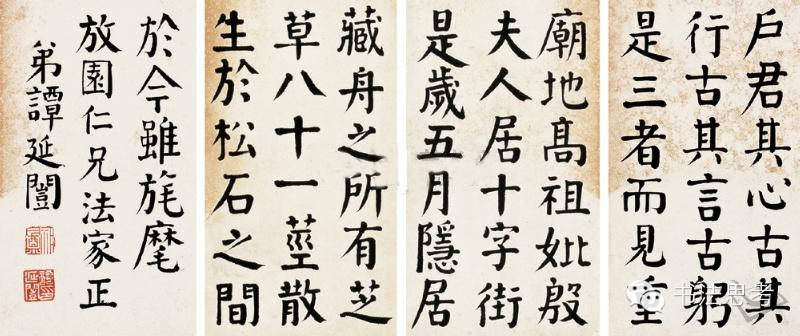 戶君其心古其
行古其言古躬
是三者而見重
廟地髙祖妣殷
夫人居十字街
是歲五月隱居
藏舟之所有芝
草八十一莖散
生於松石之間
於今雖旄麾
放園仁兄法家正
弟譚延闓
书法思考